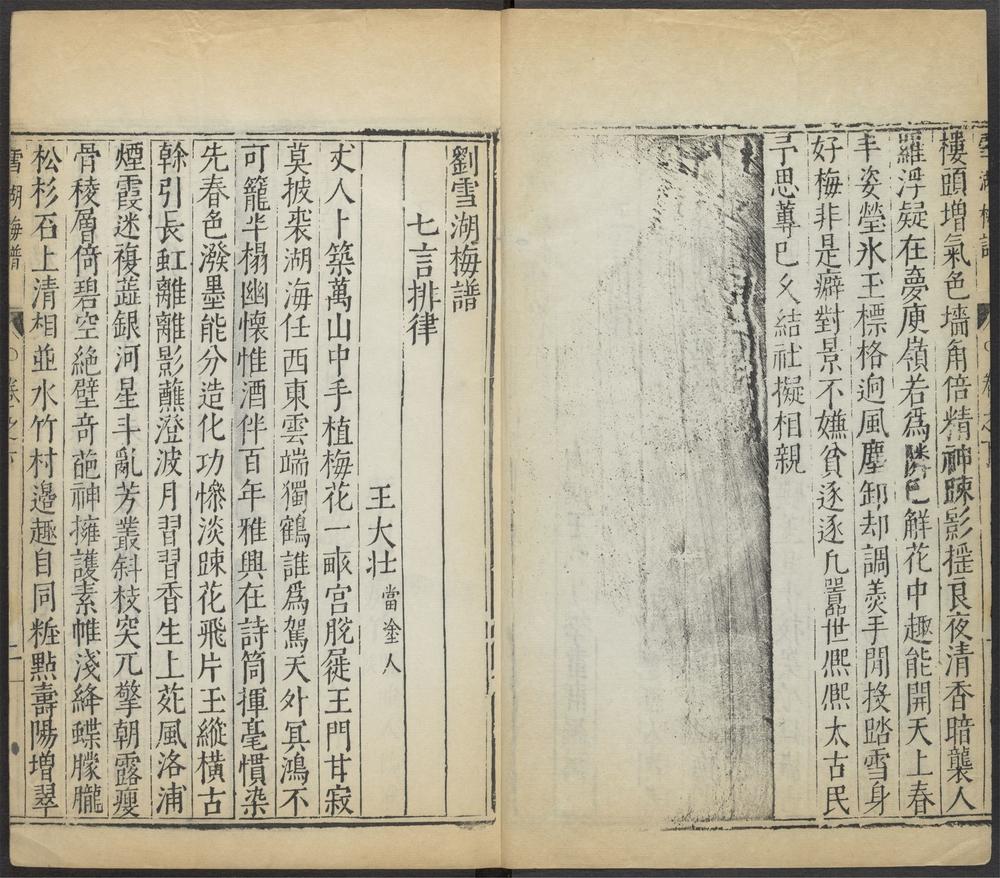 雪湖梅譜 卷之下
樓頭增氣色墻角倍精神踈影揺良夜清香暗襲人
羅浮疑在夢庾嶺若爲隣色解花中趣能開天上春
丰姿瑩氷玉標格逈風塵卸却調羹手閒投踏雪身
好梅非是癖對景不嫌貧逐逐凢嚚世熈熈太古民
予思蓴已乆結社擬相親
劉雪湖梅譜
七言排律
王大壮 當塗人
丈人卜築萬山中手植梅花一畝宮脫屣王門甘寂
莫披裘湖海任西東雲端獨鶴誰爲駕天外冥鴻不
可籠半榻幽懷惟酒伴百年雅興在詩筒揮毫慣染
先春色潑墨能分造化功慘淡踈花飛片玉縱横古
榦引長虹離離影蘸澄波月習習香生上苑風洛浦
煙霞迷複蓋銀河星斗亂芳叢斜枝突兀擎朝露瘦
骨稜層倚碧空絶壁竒葩神擁護素帷淺絳蝶朦朧
松杉石上清相並水竹村邉趣自同粧點壽陽增翠
雪湖梅譜 卷之下 二